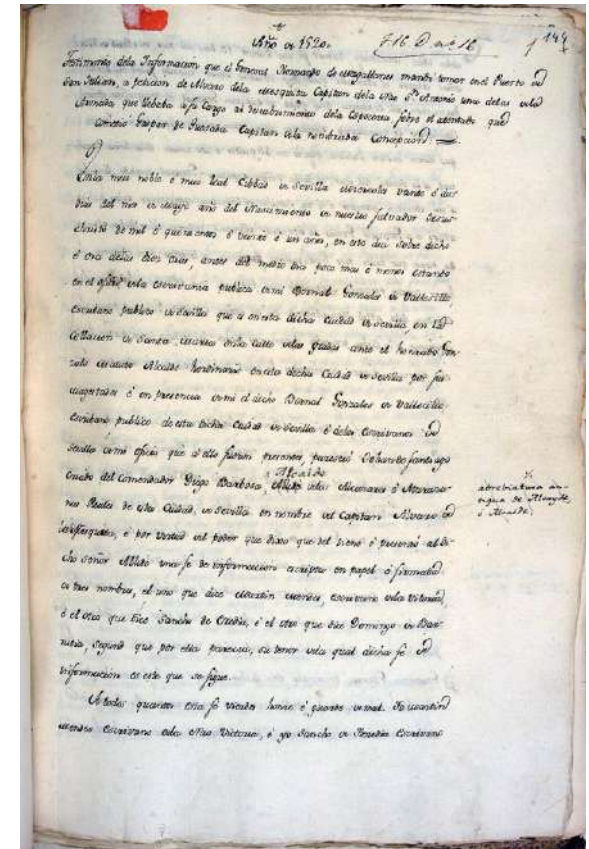 Año de 1520. 716 D. nº 16 144
1
Testimonio dela Informacion que el General Hernando de Magallanes mandó tomar en el Puerto de
San Julian, a peticion de Alvaro dela Mesquita Capitan dela Nao Sn. Antonio una delas dela
Armada que llebaba a su Cargo al descubrimiento dela Especeria sobre el atentado que
cometió Gaspar de Quesada Capitan dela nombrada Concepcion.
En la muy noble é muy leal Cibdad de Sevilla miercoles veinte é dos
dias del mes de mayo año del Nascimiento de nuestro salvador Jesu
christo de mil é quinientos é veinte é un años, en este dia sobre dicho
é ora delas diez antes del medio dia poco mas ó menos estando
en el oficio dela escrivania publica de mi Bernal Gonzales de Vallecillo,
escribano publico de Sevilla que es en esta dicha cibdad de Sevilla, en la
Collacion de Santa Maria en la calle delas Gradas ante el honrado Gon-
zalo Alcalde hordinario en esta dicha Cibdad de Sevilla por sus
magestades é en presencia de mi el dicho Bernal Gonzales de Vallecillo
escribano publico de esta dicha Cibdad de Sevilla é delos Escrivanos de
Sevilla de mi oficio que á ello fueron presentes, paresció Santiago
criado del Comendador Diego Barbosa, Alcaide delos Alcazares é Ataraza-
nas Reales de esta Cibdad, de Sevilla en nombre del Capitan Alvaro de
Mesquita, é por virtud del poder que dixo que del tiene é presentó al di-
cho señor Alcalde una fé de informacion escripta en papel é firmada
de tres nombres, el uno que dice Martin Mendez, escrivano dela Vitoria,
é el otro que dice Sancho de Eredia, é el otro que dice Domingo de Bar-
rutia, segund que por ella parescia, su tenor dela qual dicha fé de
informacion es este que se sigue.
A todos quantos esta fé vieredes honre é guarde de mal. Yo Martin
Mendez Escrivano dela Nao Victoria, é yo Sancho de Heredia Escrivano
abreviatura an-
tigua de Alcayde,
ó Alcalde.